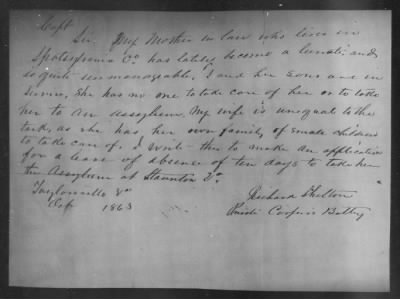 Capt
Sir, My Mother in law who lives in
Spotsylvania Co. has lately become a lunatic and
is quite unmanageable, I and her sons are in
service, she has no one to take care of her or to take
her to an assylum. My wife is unequal to the
task, as she has her own family, of small children
to take care of, I write this to make an application
for a leave of absence of ten days to take her
to the Assylum at Staunton Va.
Va
1863
Richard Shelton
Battery